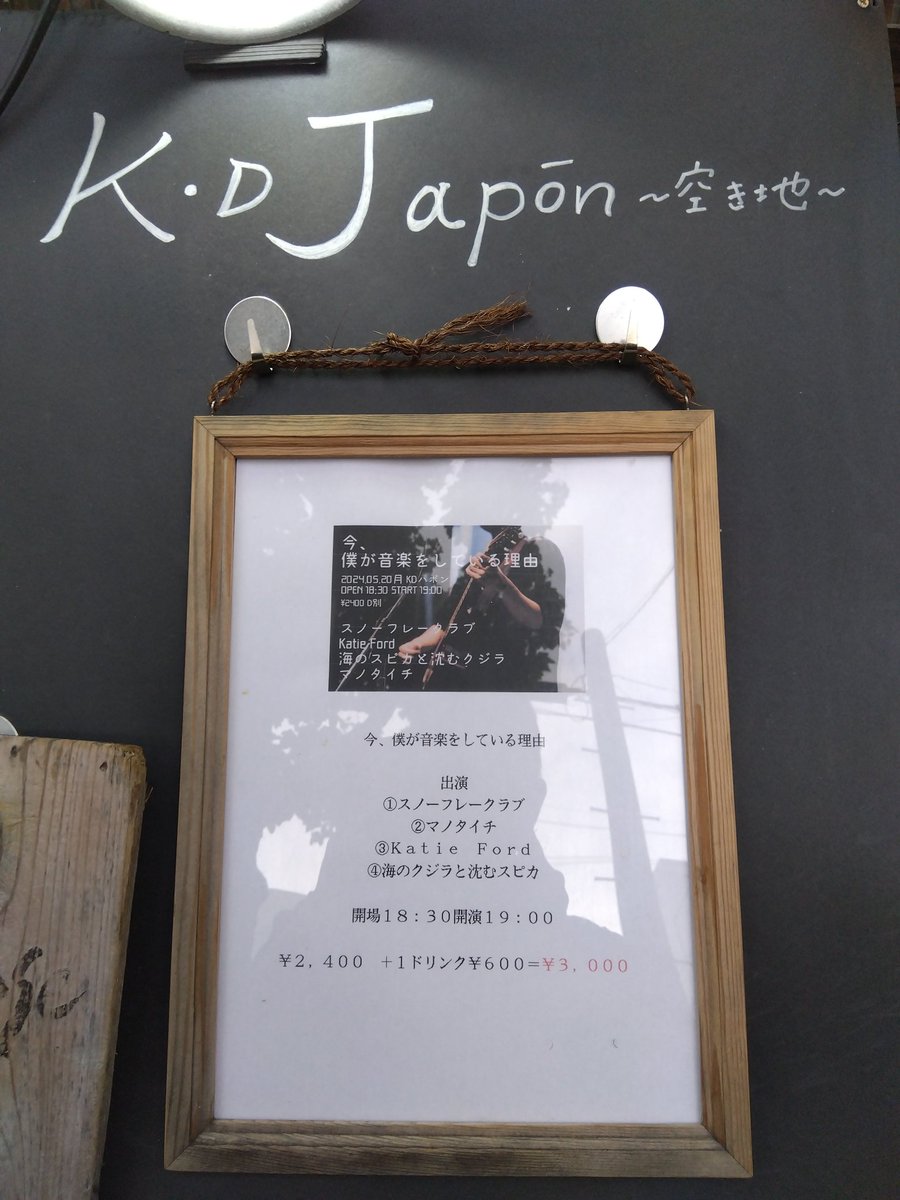 K・D Japōn ～空き地～
今、
僕が音楽をしている理由
2024.05.20月 KDハポン
OPEN 18:30 START 19:00
¥2400 D別
スノーフレークラブ
Katie Ford
海のスピカと沈むクジラ
マノタイチ
今、僕が音楽をしている理由
出演
①スノーフレークラブ
②マノタイチ
③Katie Ford
④海のクジラと沈むスピカ
開場18:30開演19:00
¥2,400 +1ドリンク¥600=¥3,000